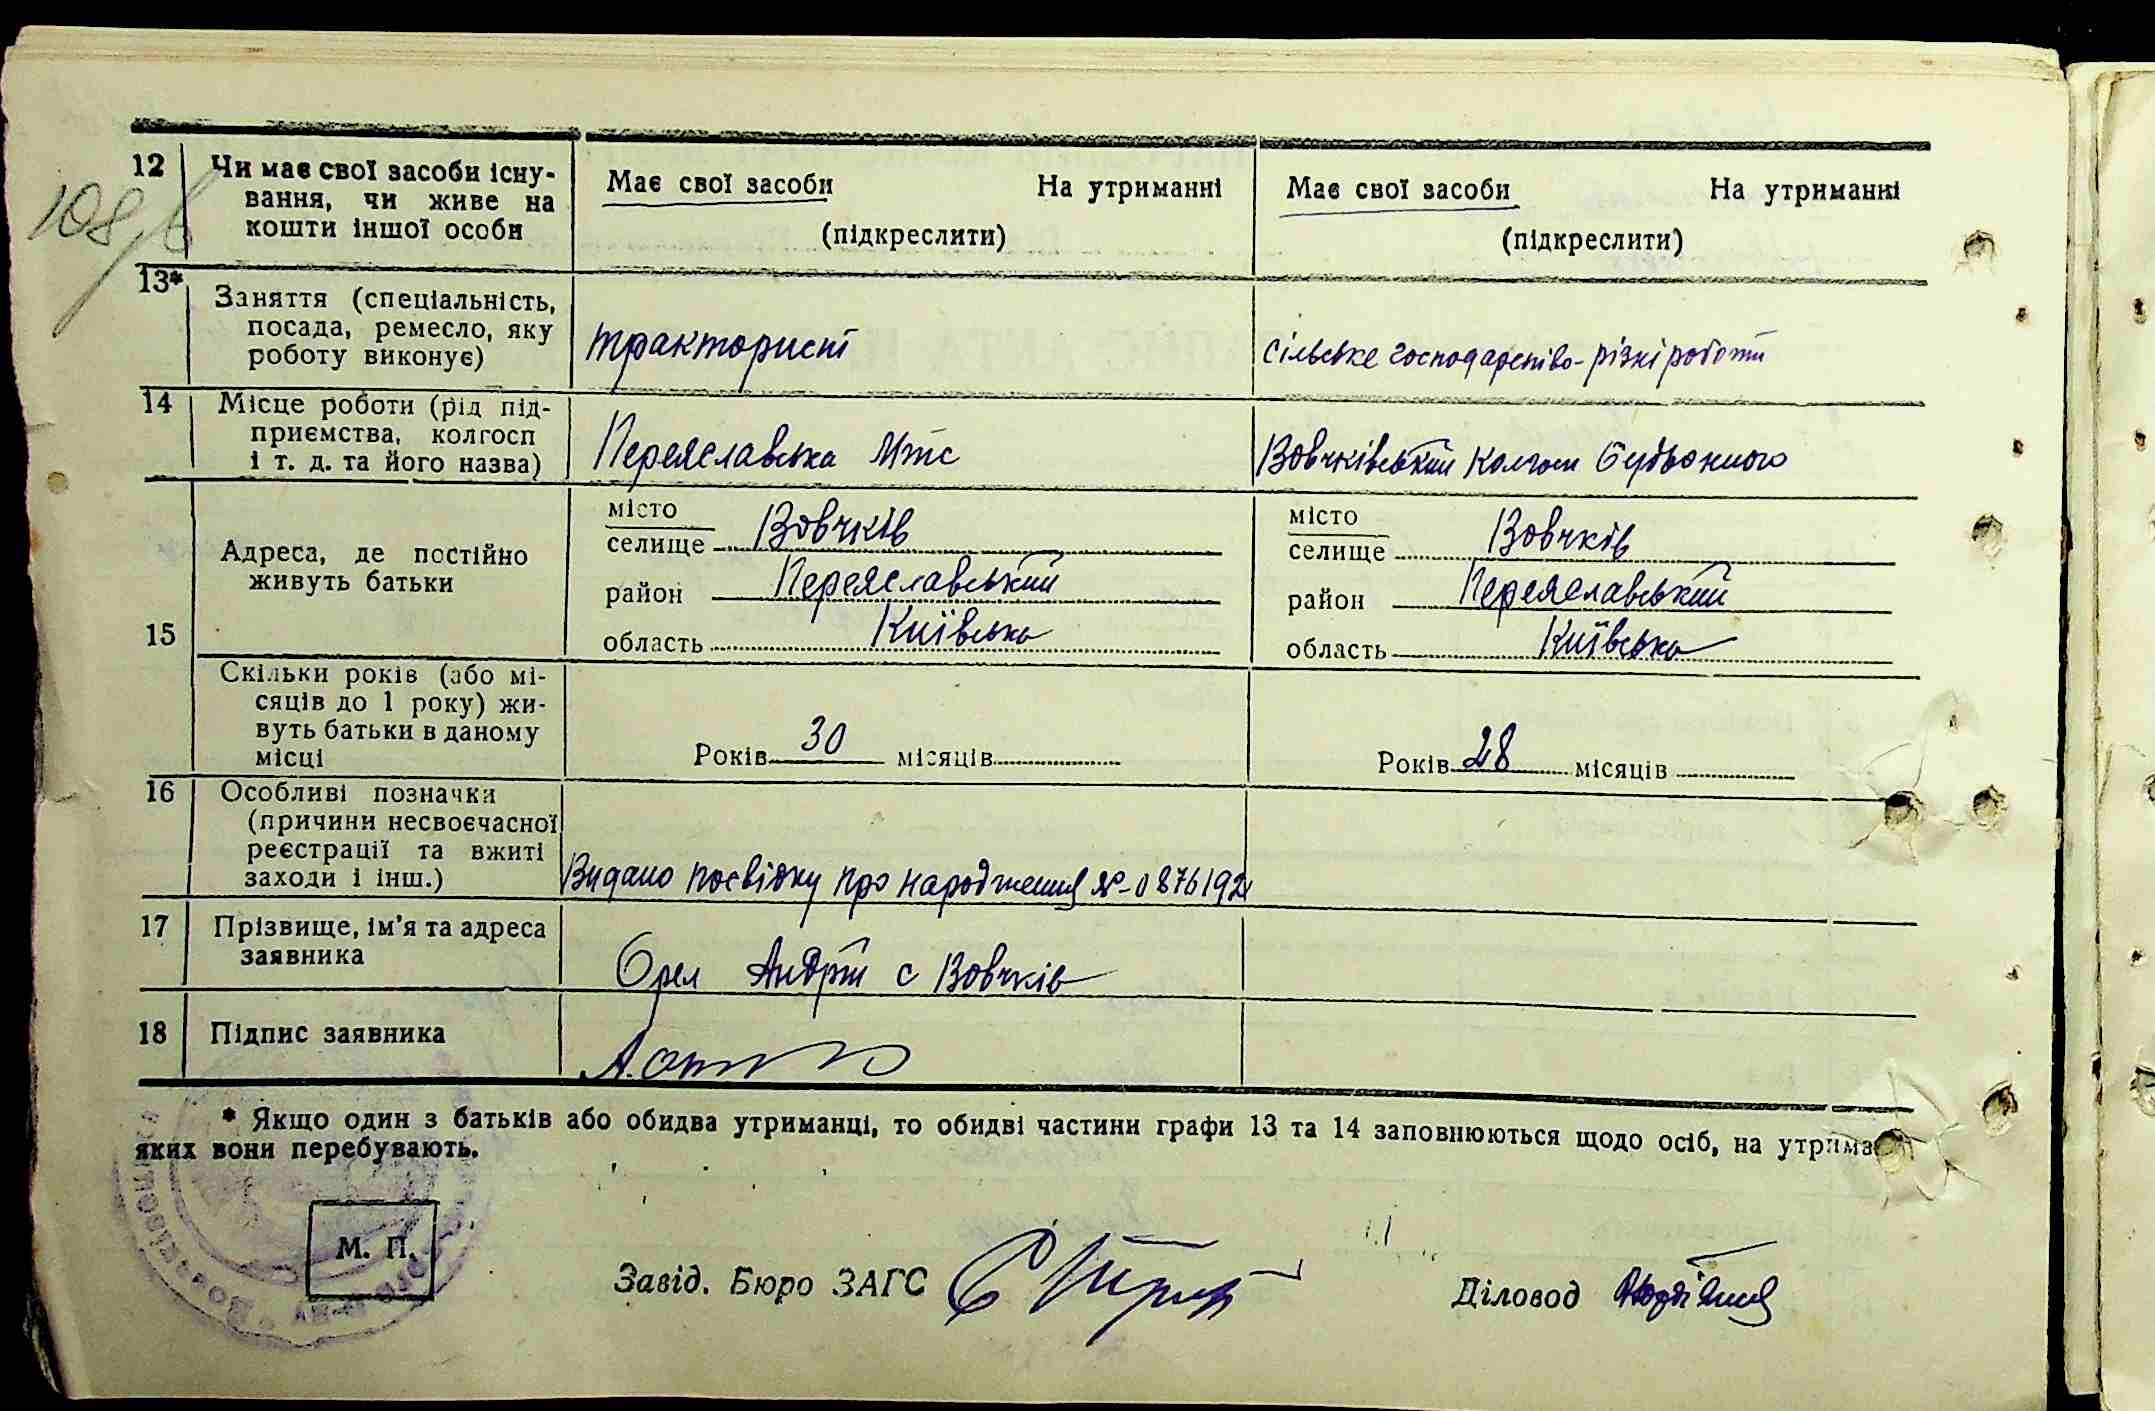 108 зв
12 Чи має свої засоби існу- Має свої засоби На утриманні Має свої засоби На утриманні
вання, чи живе на
кошти іншої особи (підкреслити) (підкреслити)
13*
Заняття (спеціальність,
посада, ремесло, яку тракторист сільське господарство-різні роботи
роботу виконує)
14 Місце роботи (рід під-
приємства, колгосп Переяславська мтс Вовчківський колгосп Будьоного
і т. д. та його назва)
місто місто
селище Вовчків селище Вовчків
Адреса, де постійно
живуть батьки район Переяславський район Переяславський
15 область Київська область Київська
Скільки років (або мі-
сяців до 1 року) жи-
вуть батьки в даному
місці Років 30 місяців Років 28 місяців
16 Особливі позначки
(причини несвоєчасної
реєстрації та вжиті
заходи і інш.) Видано посвідку про народження №-0876192
17 Прізвище, ім'я та адреса
заявника Орел Андрій с Вовчків
18 Підпис заявника
* Якщо один з батьків або обидва утриманці, то обидві частини графи 13 та 14 заповнюються щодо осіб, на утрима
яких вони перебувають.
М. П.
Завід. Бюро ЗАГС Діловод